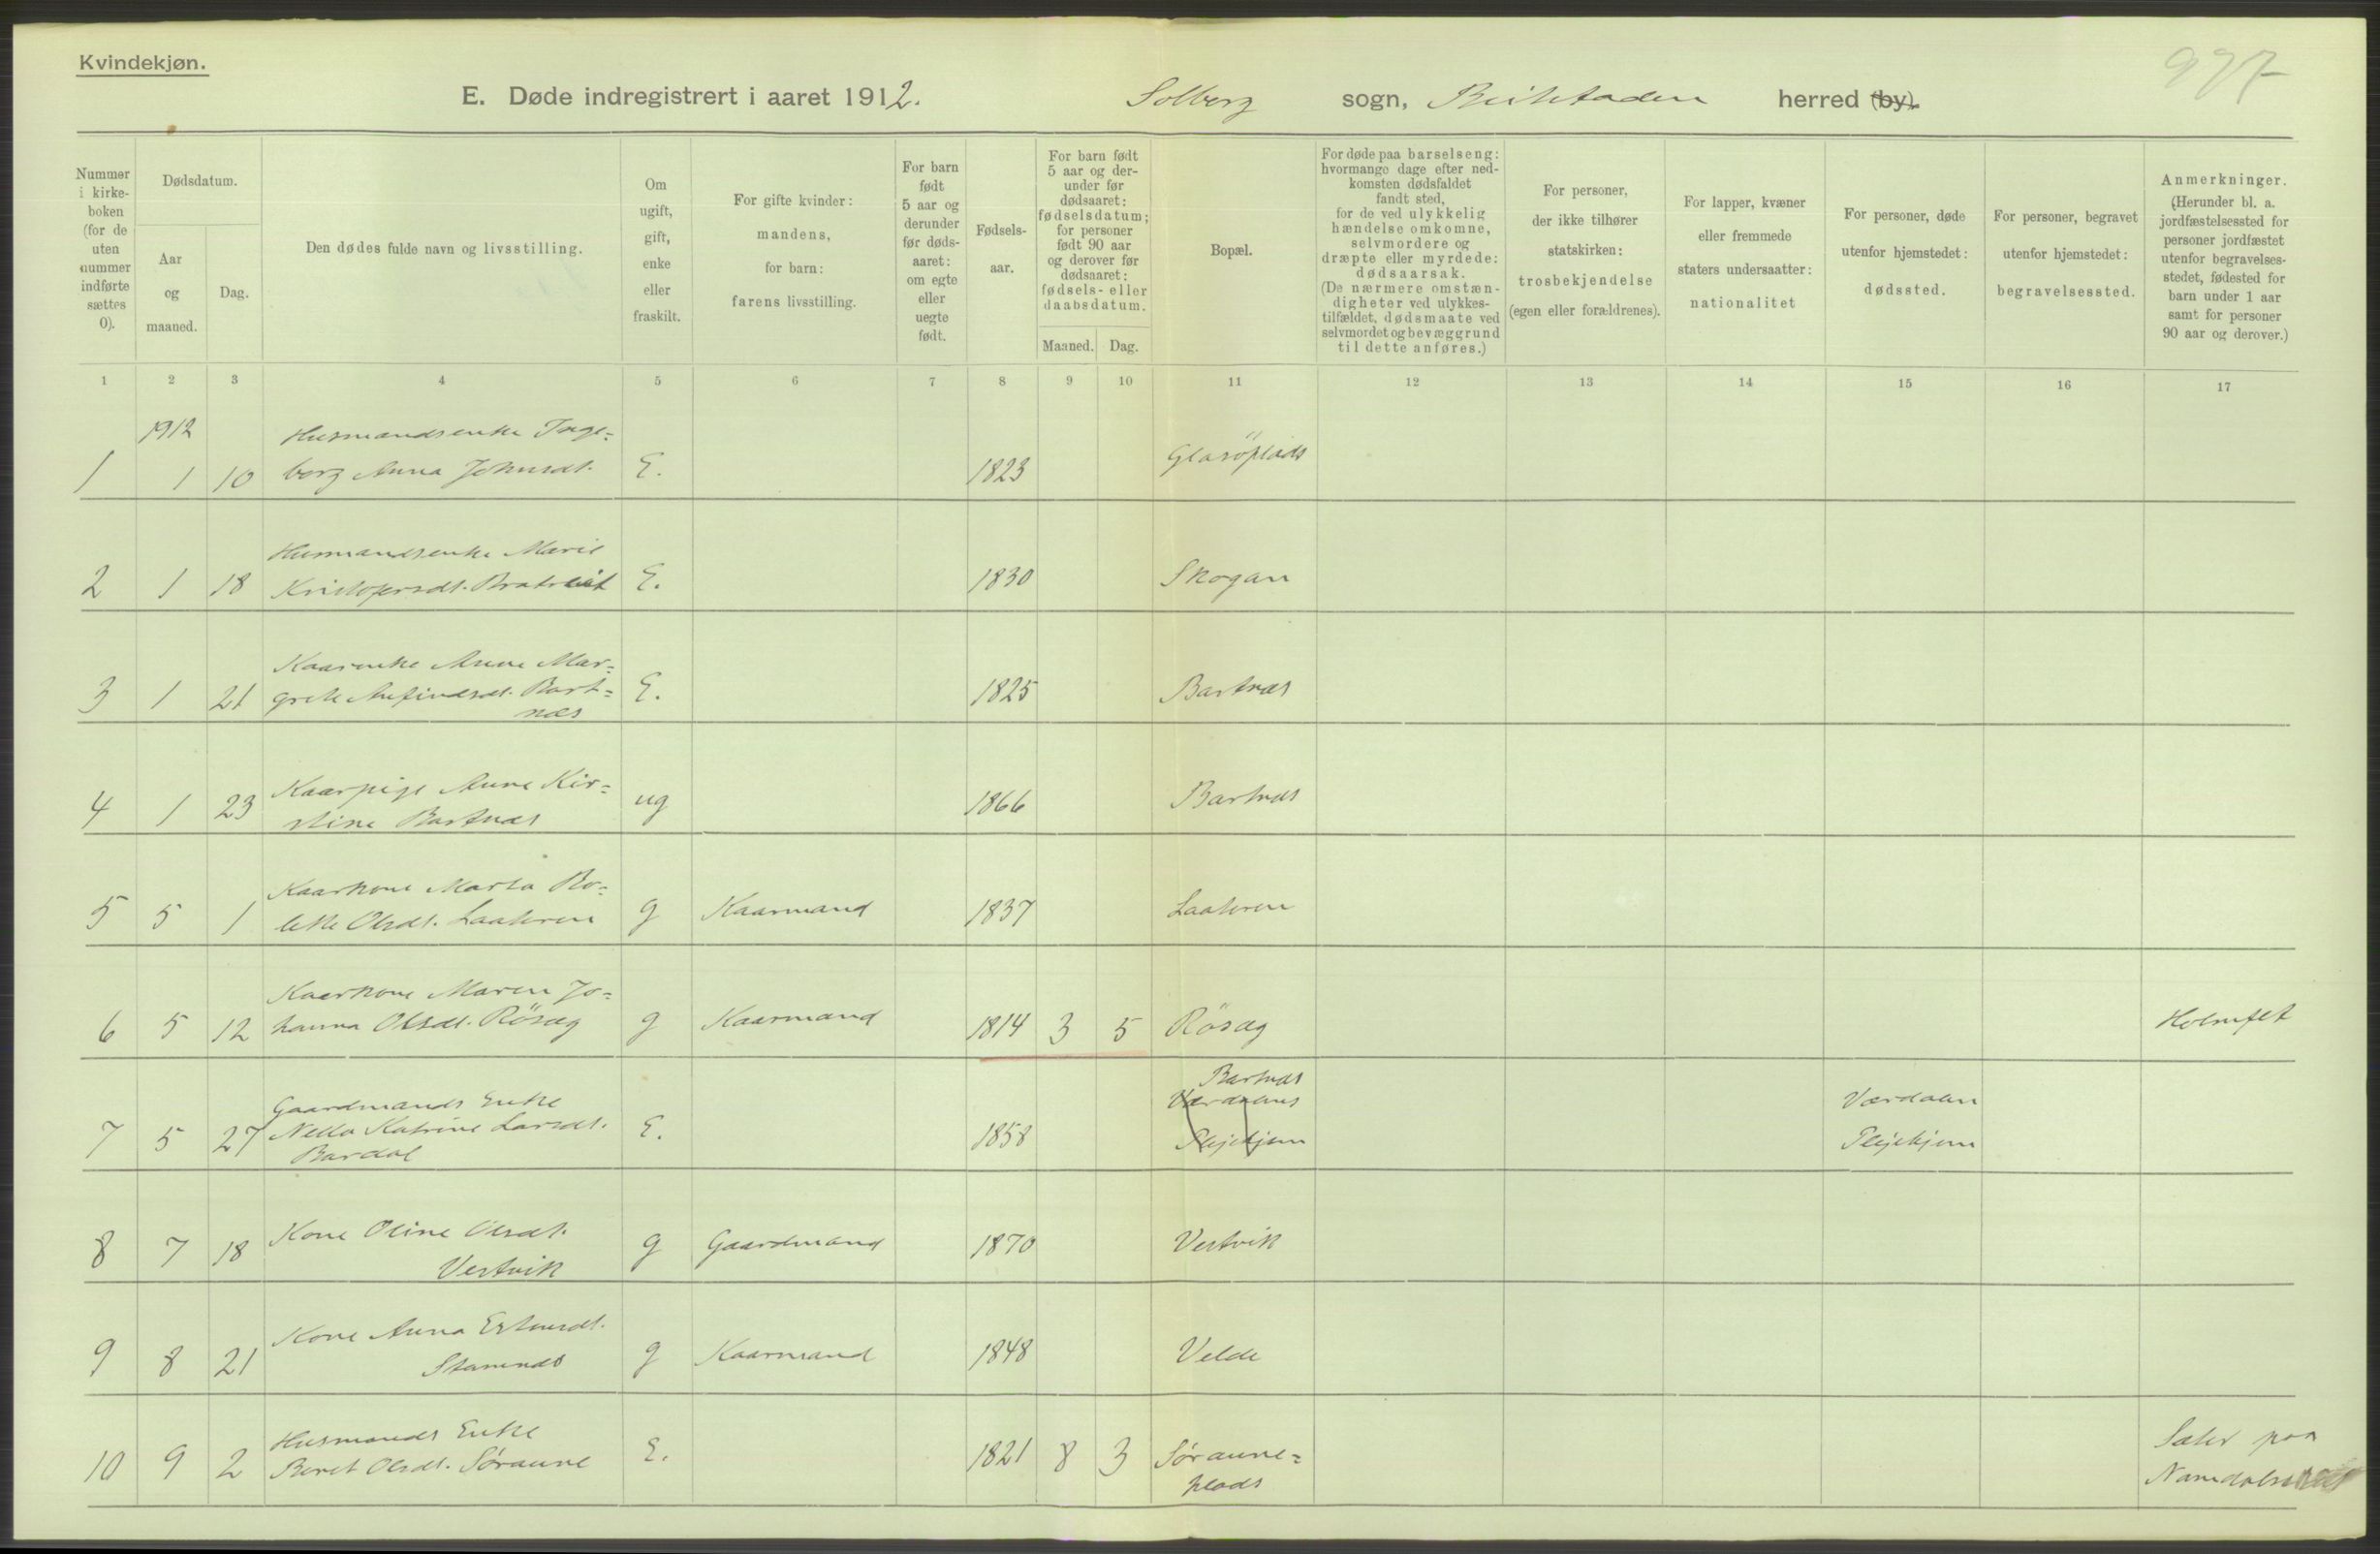 Kvindekjøn.
977
E. Døde indregistrert i aaret 1912. Solberg sogn, Beitstaden herred (by).
Nummer i kirke-boken (for de uten nummer indførte sættes 0).
Dødsdatum.
Aar og maaned.
Dag.
Den dødes fulde navn og livsstilling.
Om ugift, gift, enke eller fraskilt.
For gifte kvinder: mandens, for barn: farens livsstilling.
For barn født 5 aar og derunder før døds-aaret: om egte eller uegte født.
Fødsels-aar.
For barn født 5 aar og der-under før dødsaaret: fødselsdatum; for personer født 90 aar og derover før dødsaaret: fødsels- eller daabsdatum.
Maaned. Dag.
Bopæl.
For døde paa barselseng: hvormange dage efter ned-komsten dødsfaldet fandt sted, for de ved ulykkelig hændelse omkomne, selvmordere og dræpte eller myrdede: dødsaarsak. (De nærmere omstæn-digheter ved ulykkes-tilfældet, dødsmaate ved selvmordet og bevæggrund til dette anføres.)
For personer, der ikke tilhører statskirken: trosbekjendelse (egen eller forældrenes).
For lapper, kvæner eller fremmede staters undersaatter: nationalitet
For personer, døde utenfor hjemstedet: dødssted.
For personer, begravet utenfor hjemstedet: begravelsessted.
Anmerkninger. (Herunder bl. a. jordfæstelsessted for personer jordfæstet utenfor begravelses-stedet, fødested for barn under 1 aar samt for personer 90 aar og derover.)
1 2 3 4 5 6 7 8 9 10 11 12 13 14 15 16 17
1912 Husmandsenke Inge=
1 1 10 borg Anna Johnsdt. E. 1823 Glasöplads
Husmandsenke Marie
2 1 18 Kristofersdt. E. 1830 Skogan
Kaarenke Anne Mar=
3 1 21 grete Anfindsdt. Bart= E. 1825 Bartnæs
næs
Kaarpige Anne Kir=
4 1 23 stine Bartnæs ug 1866 Bartnæs
Kaarkone Marta Bo=
5 5 1 lette Olsdt. Laateren g Kaarmand 1837 Laateren
Kaarkone Maren Jo=
6 5 12 hanna Olsdt. Rösæg g Kaarmand 1814 3 5 Rösæg Holmset
Bartnæs
Gaardmands Enke Værdalens Værdalen
7 5 27 Nella Katrine Larsdt. E. 1858 Plejehjem Plejehjem
Bardal
8 7 18 Kone Oline Olsdt. g Gaardmand 1870 Vestvik
Vestvik
Kone Anna Estensdt.
9 8 21 Stamnæs g Kaarmand 1848 Velde
Husmands Enke Sæter paa
10 9 2 Beret Olsdt. Søraune E. 1821 8 3 Søraune= Namdalseidet
plads